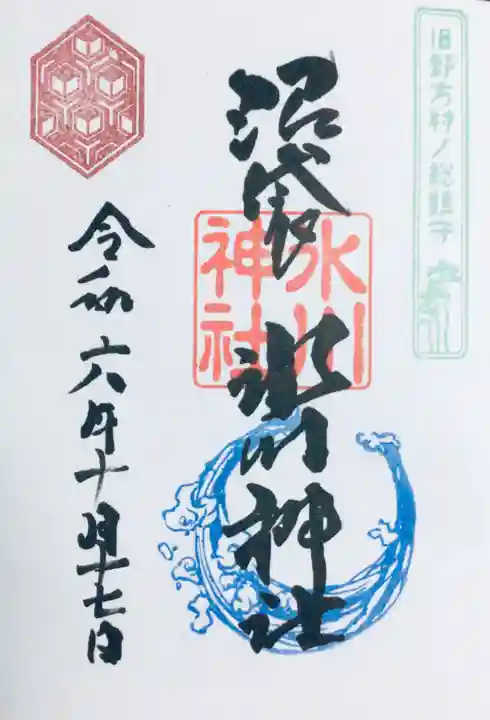 旧野方村ノ総鎮守
沼袋 氷川神社
氷川
神社
令和六年十月十七日